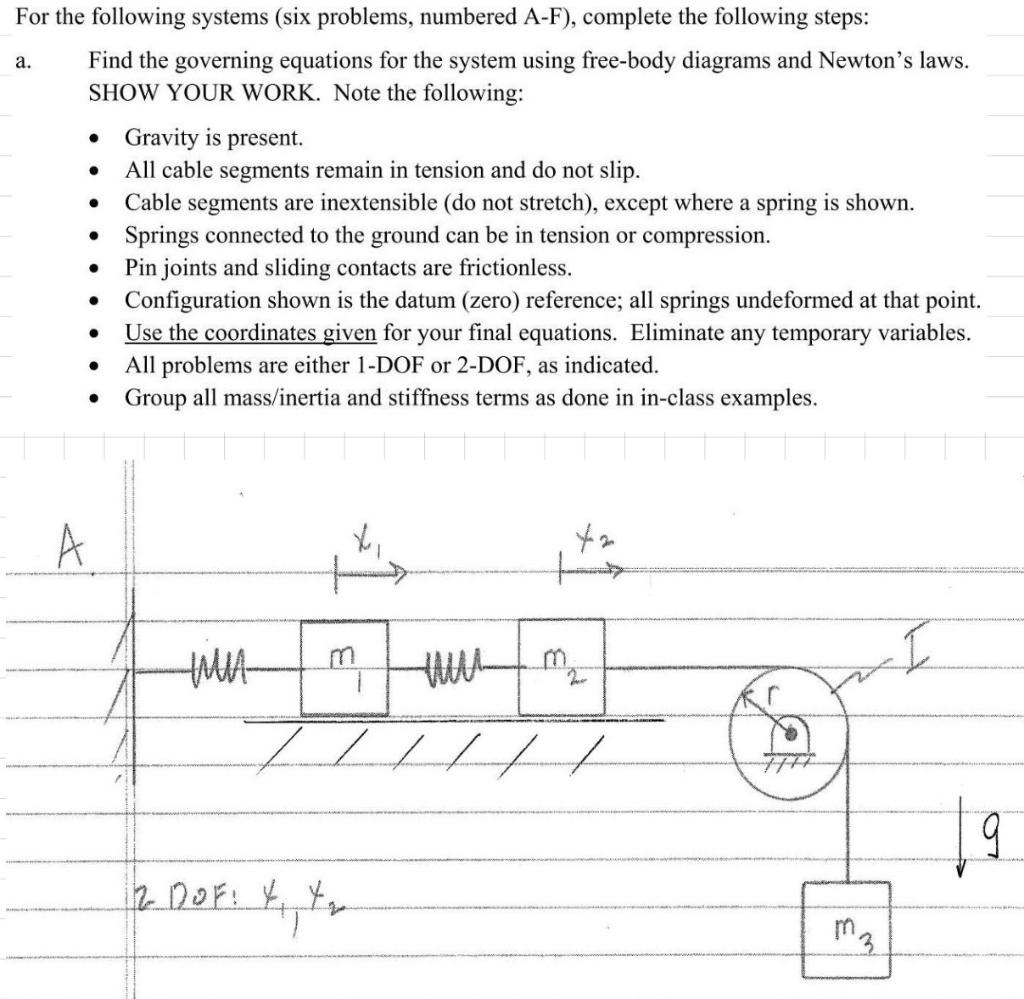 For the following systems (six problems, numbered A-F), complete the following steps:
a. Find the governing equations for the system using free-body diagrams and Newton's laws.
SHOW YOUR WORK. Note the following:
• Gravity is present.
• All cable segments remain in tension and do not slip.
• Cable segments are inextensible (do not stretch), except where a spring is shown.
• Springs connected to the ground can be in tension or compression.
• Pin joints and sliding contacts are frictionless.
• Configuration shown is the datum (zero) reference; all springs undeformed at that point.
• Use the coordinates given for your final equations. Eliminate any temporary variables.
• All problems are either 1-DOF or 2-DOF, as indicated.
• Group all mass/inertia and stiffness terms as done in in-class examples.
A.
x₁
x₂
m₁
m₂
r
I
g
2 DOF: x₁, x₂
m₃